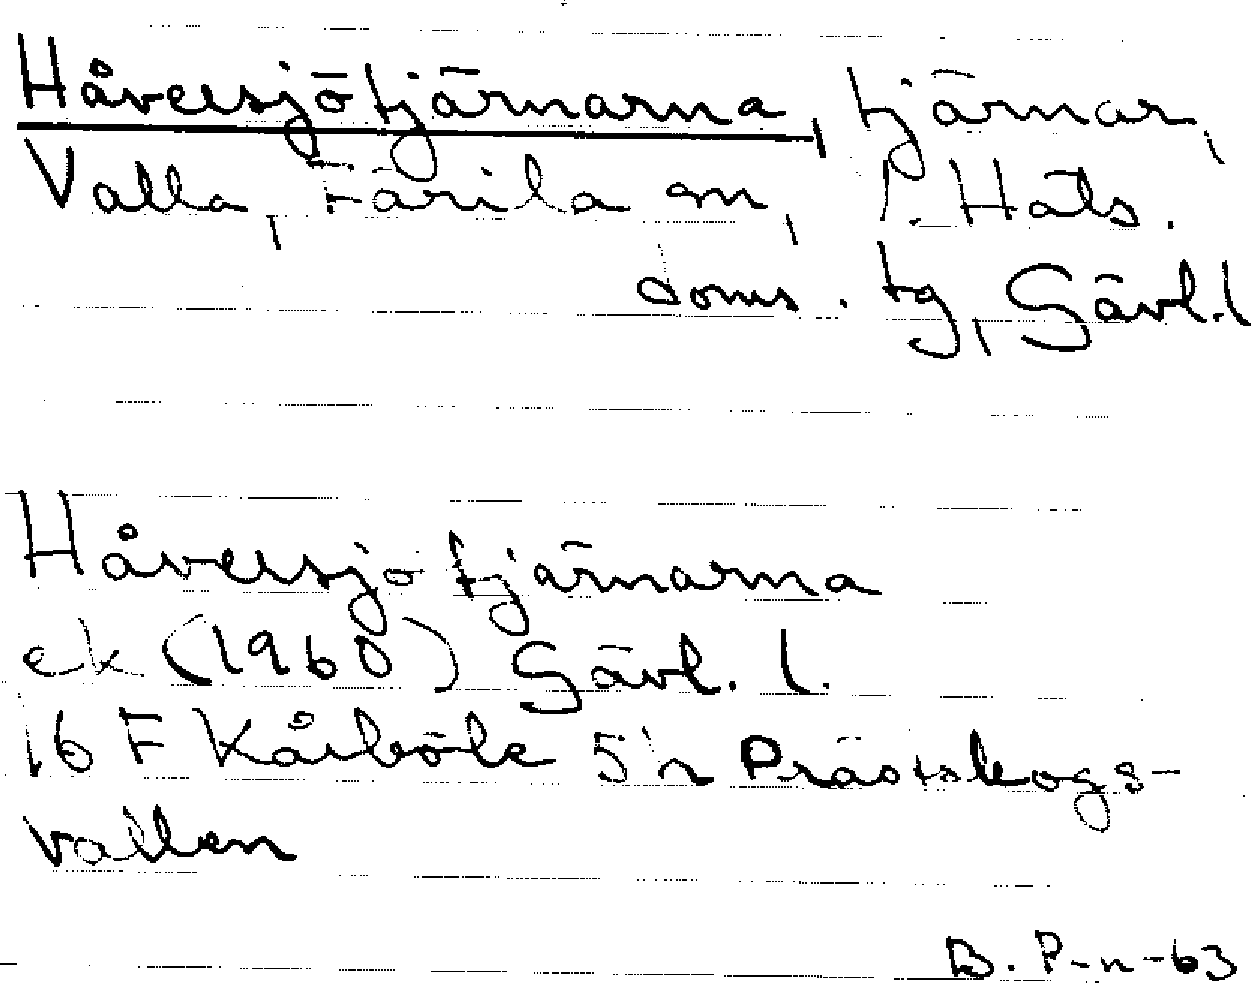 Håversjötjärnarna, tjärnar,
Valla, Färila sn, V. Häls.
doms. tg, Gävl.l
Håversjötjärnarna
ek (1960) Gävl. l.
16 F Kårböle 5'n Prästskogs-
vallen
B. P-n-63